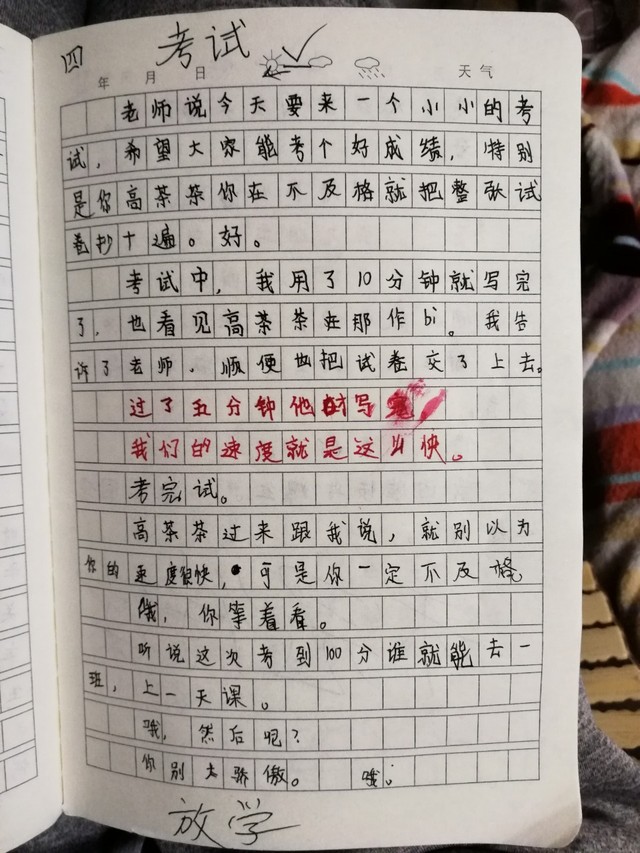 四 考试
年 月 日 天气
老师说今天要来一个小小的考
试，希望大家能考个好成绩，特别
是你高茶茶你在不及格就把整张试
卷抄十遍。好。
考试中，我用了10分钟就写完
了，也看见高茶茶在那作bi。我告
许了老师，顺便也把试卷交了上去。
过了五分钟他才写完
我们的速度就是这么快。
考完试。
高茶茶过来跟我说，就别以为
你的速度很快，可是你一定不及格
哦，你等着看。
听说这次考到100分谁就能去一
班，上一天课。
哦，然后呢？
你别太骄傲。 哦。
放学